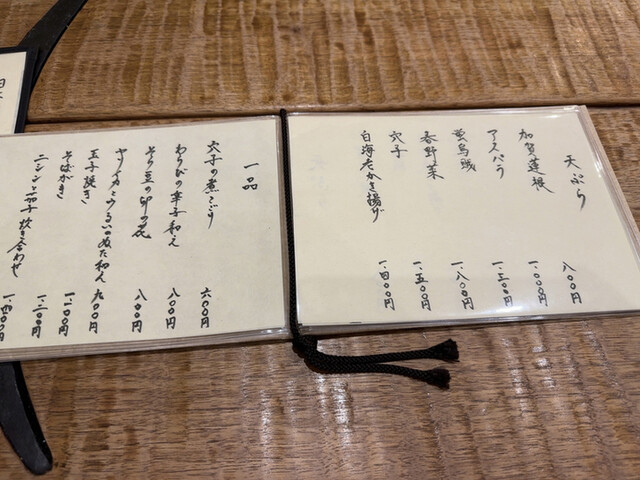 天ぷら
加賀蓮根 八〇〇円
アスパラ 一.〇〇〇円
蛍烏賊 一.三〇〇円
春野菜 一.八〇〇円
穴子 一.五〇〇円
白海老かき揚げ 一.四〇〇円
一品
穴子の煮こごり 六〇〇円
わらびの辛子和え 八〇〇円
そら豆の卯の花 八〇〇円
ヤリイカとうるいのぬた和え 九〇〇円
玉子焼き 一.一〇〇円
そばがき 一.三〇〇円
ニシンと茄子炊き合わせ 一.四〇〇円